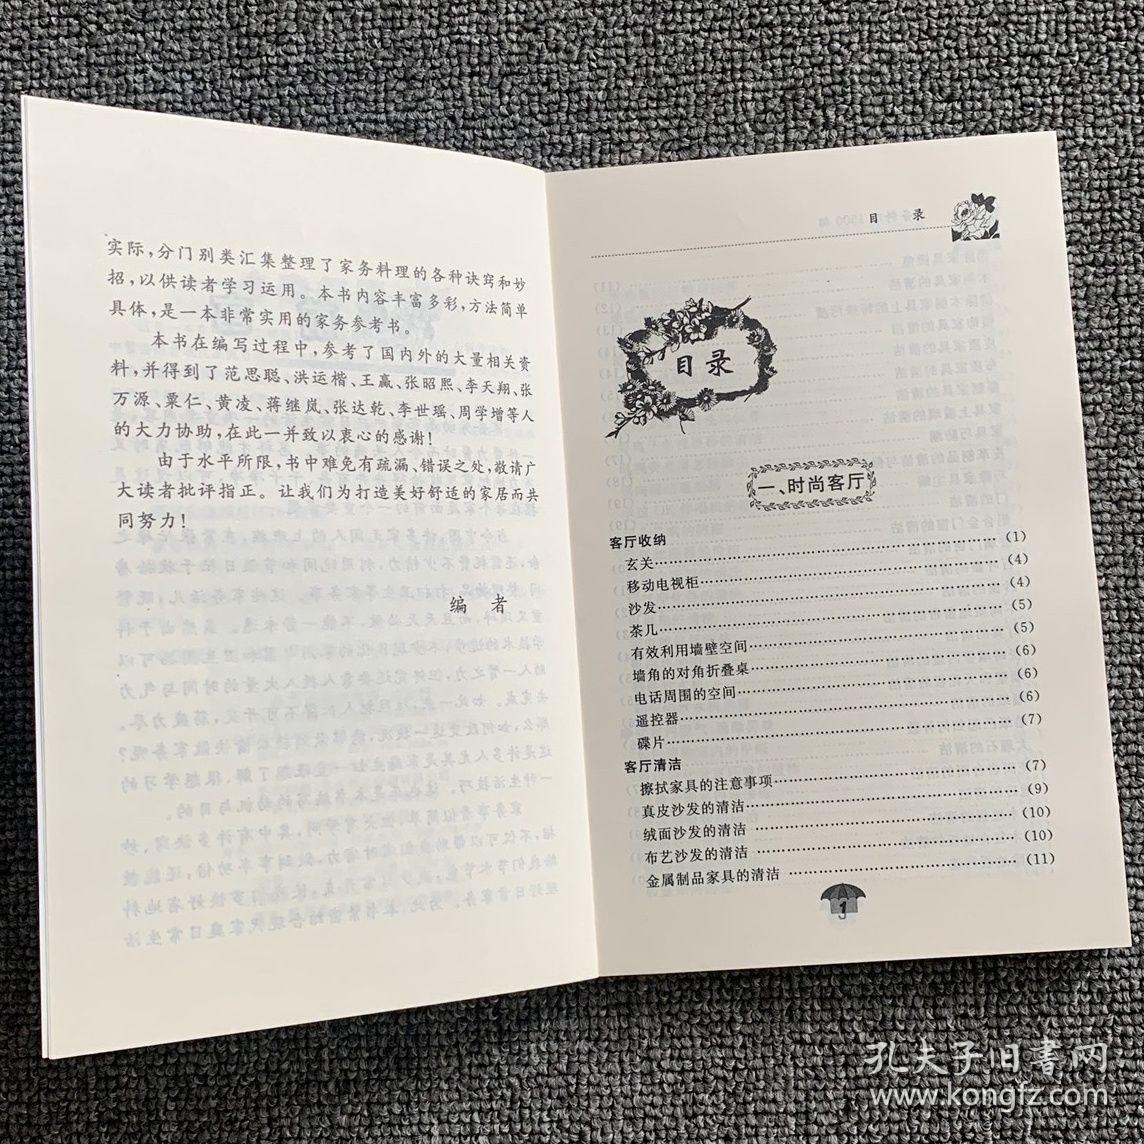 实际,分门别类汇集整理了家务料理的各种诀窍和妙
招,以供读者学习运用。本书内容丰富多彩,方法简单
具体,是一本非常实用的家务参考书。
本书在编写过程中,参考了国内外的大量相关资
料,并得到了范思聪、洪运楷、王赢、张昭熙、李天翔、张
万源、粟仁、黄凌、蒋继岚、张达乾、李世瑶、周学增等人
的大力协助,在此一并致以衷心的感谢!
由于水平所限,书中难免有疏漏、错误之处,敬请广
大读者批评指正。让我们为打造美好舒适的家居而共
同努力!
编 者
目 录
目录
一、时尚客厅
客厅收纳
玄关……………………………………(1)
移动电视柜……………………………(4)
沙发……………………………………(4)
茶几……………………………………(5)
有效利用墙壁空间……………………(5)
墙角的对角折叠桌……………………(6)
电话周围的空间………………………(6)
遥控器…………………………………(6)
碟片……………………………………(7)
客厅清洁
擦拭家具的注意事项…………………(7)
真皮沙发的清洁………………………(9)
绒面沙发的清洁………………………(10)
布艺沙发的清洁………………………(10)
金属制品家具的清洁…………………(11)
1
孔夫子旧书网
www.kongfz.com